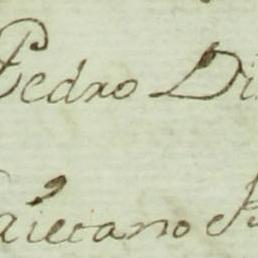 Pedro Di
Caietano